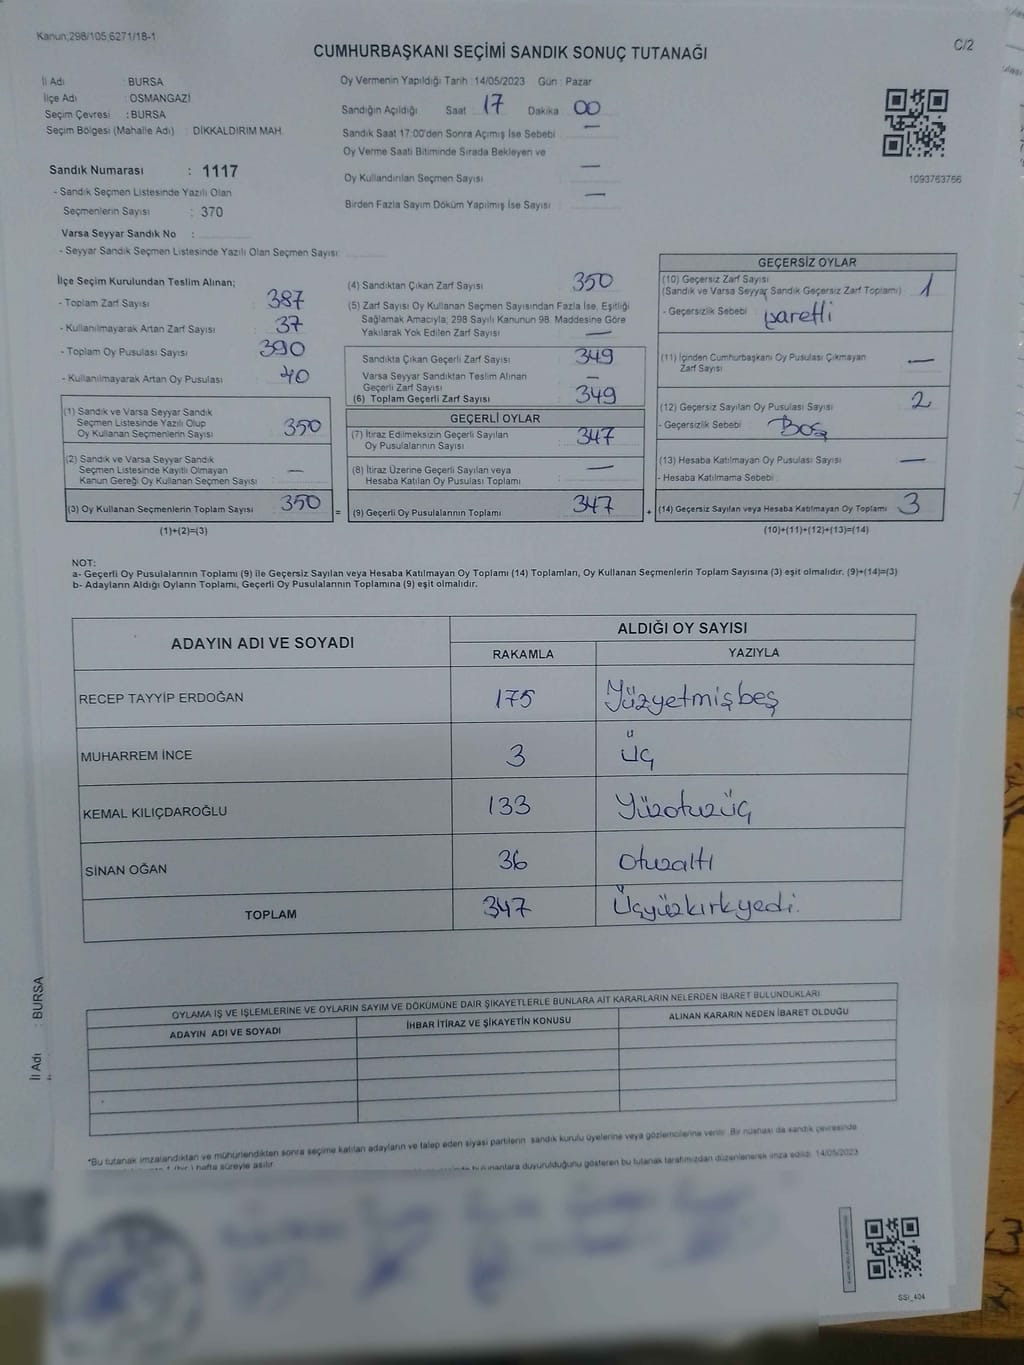 Kanun;298/105,6271/18-1
C/2
CUMHURBAŞKANI SEÇİMİ SANDIK SONUÇ TUTANAĞI
İl Adı : BURSA
İlçe Adı : OSMANGAZİ
Seçim Çevresi : BURSA
Seçim Bölgesi (Mahalle Adı) : DİKKALDIRIM MAH.
Sandık Numarası : 1117
- Sandık Seçmen Listesinde Yazılı Olan
Seçmenlerin Sayısı : 370
Varsa Seyyar Sandık No :
- Seyyar Sandık Seçmen Listesinde Yazılı Olan Seçmen Sayısı:
Oy Vermenin Yapıldığı Tarih : 14/05/2023 Gün : Pazar
Sandığın Açıldığı Saat 17 Dakika 00
Sandık Saat 17:00'den Sonra Açımış İse Sebebi —
Oy Verme Saati Bitiminde Sırada Bekleyen ve
Oy Kullandırılan Seçmen Sayısı —
Birden Fazla Sayım Döküm Yapılmış İse Sayısı —
1093763766
İlçe Seçim Kurulundan Teslim Alınan;
- Toplam Zarf Sayısı 387
- Kullanılmayarak Artan Zarf Sayısı 37
- Toplam Oy Pusulası Sayısı 390
- Kullanılmayarak Artan Oy Pusulası 40
(1) Sandık ve Varsa Seyyar Sandık
Seçmen Listesinde Yazılı Olup
Oy Kullanan Seçmenlerin Sayısı 350
(2) Sandık ve Varsa Seyyar Sandık
Seçmen Listesinde Kayıtlı Olmayan
Kanun Gereği Oy Kullanan Seçmen Sayısı : —
(3) Oy Kullanan Seçmenlerin Toplam Sayısı 350
(1)+(2)=(3)
=
(4) Sandıktan Çıkan Zarf Sayısı 350
(5) Zarf Sayısı Oy Kullanan Seçmen Sayısından Fazla İse, Eşitliği
Sağlamak Amacıyla; 298 Sayılı Kanunun 98. Maddesine Göre
Yakılarak Yok Edilen Zarf Sayısı —
Sandıkta Çıkan Geçerli Zarf Sayısı 349
Varsa Seyyar Sandıktan Teslim Alınan
Geçerli Zarf Sayısı —
(6) Toplam Geçerli Zarf Sayısı 349
GEÇERLİ OYLAR
(7) İtiraz Edilmeksizin Geçerli Sayılan
Oy Pusulalarının Sayısı 347
(8) İtiraz Üzerine Geçerli Sayılan veya
Hesaba Katılan Oy Pusulası Toplamı —
(9) Geçerli Oy Pusulalarının Toplamı 347
+
GEÇERSİZ OYLAR
(10) Geçersiz Zarf Sayısı 1
(Sandık ve Varsa Seyyar Sandık Geçersiz Zarf Toplamı)
- Geçersizlik Sebebi : işaretli
(11) İçinden Cumhurbaşkanı Oy Pusulası Çıkmayan
Zarf Sayısı —
(12) Geçersiz Sayılan Oy Pusulası Sayısı 2
- Geçersizlik Sebebi : Boş
(13) Hesaba Katılmayan Oy Pusulası Sayısı —
- Hesaba Katılmama Sebebi :
(14) Geçersiz Sayılan veya Hesaba Katılmayan Oy Toplamı 3
(10)+(11)+(12)+(13)=(14)
NOT:
a- Geçerli Oy Pusulalarının Toplamı (9) ile Geçersiz Sayılan veya Hesaba Katılmayan Oy Toplamı (14) Toplamları, Oy Kullanan Seçmenlerin Toplam Sayısına (3) eşit olmalıdır. (9)+(14)=(3)
b- Adayların Aldığı Oyların Toplamı, Geçerli Oy Pusulalarının Toplamına (9) eşit olmalıdır.
ADAYIN ADI VE SOYADI
ALDIĞI OY SAYISI
RAKAMLA YAZIYLA
RECEP TAYYİP ERDOĞAN 175 Yüzyetmişbeş
MUHARREM İNCE 3 Üç
KEMAL KILIÇDAROĞLU 133 Yüzotuzüç
SİNAN OĞAN 36 Otuzaltı
TOPLAM 347 Üçyüzkırkyedi.
OYLAMA İŞ VE İŞLEMLERİNE VE OYLARIN SAYIM VE DÖKÜMÜNE DAİR ŞİKAYETLERLE BUNLARA AİT KARARLARIN NELERDEN İBARET BULUNDUKLARI
ADAYIN ADI VE SOYADI
İHBAR İTİRAZ VE ŞİKAYETİN KONUSU
ALINAN KARARIN NEDEN İBARET OLDUĞU
*Bu tutanak imzalandıktan ve mühürlendikten sonra seçime katılan adayların ve talep eden siyasi partilerin sandık kurulu üyelerine veya gözlemcilerine verilir. Bir nüshası da sandık çevresinde
1 (bir) hafta süreyle asılır.
bulunanlara duyurulduğunu gösteren bu tutanak tarafımızdan düzenlenerek imza edildi. 14/05/2023
İl Adı : BURSA
SSI_404